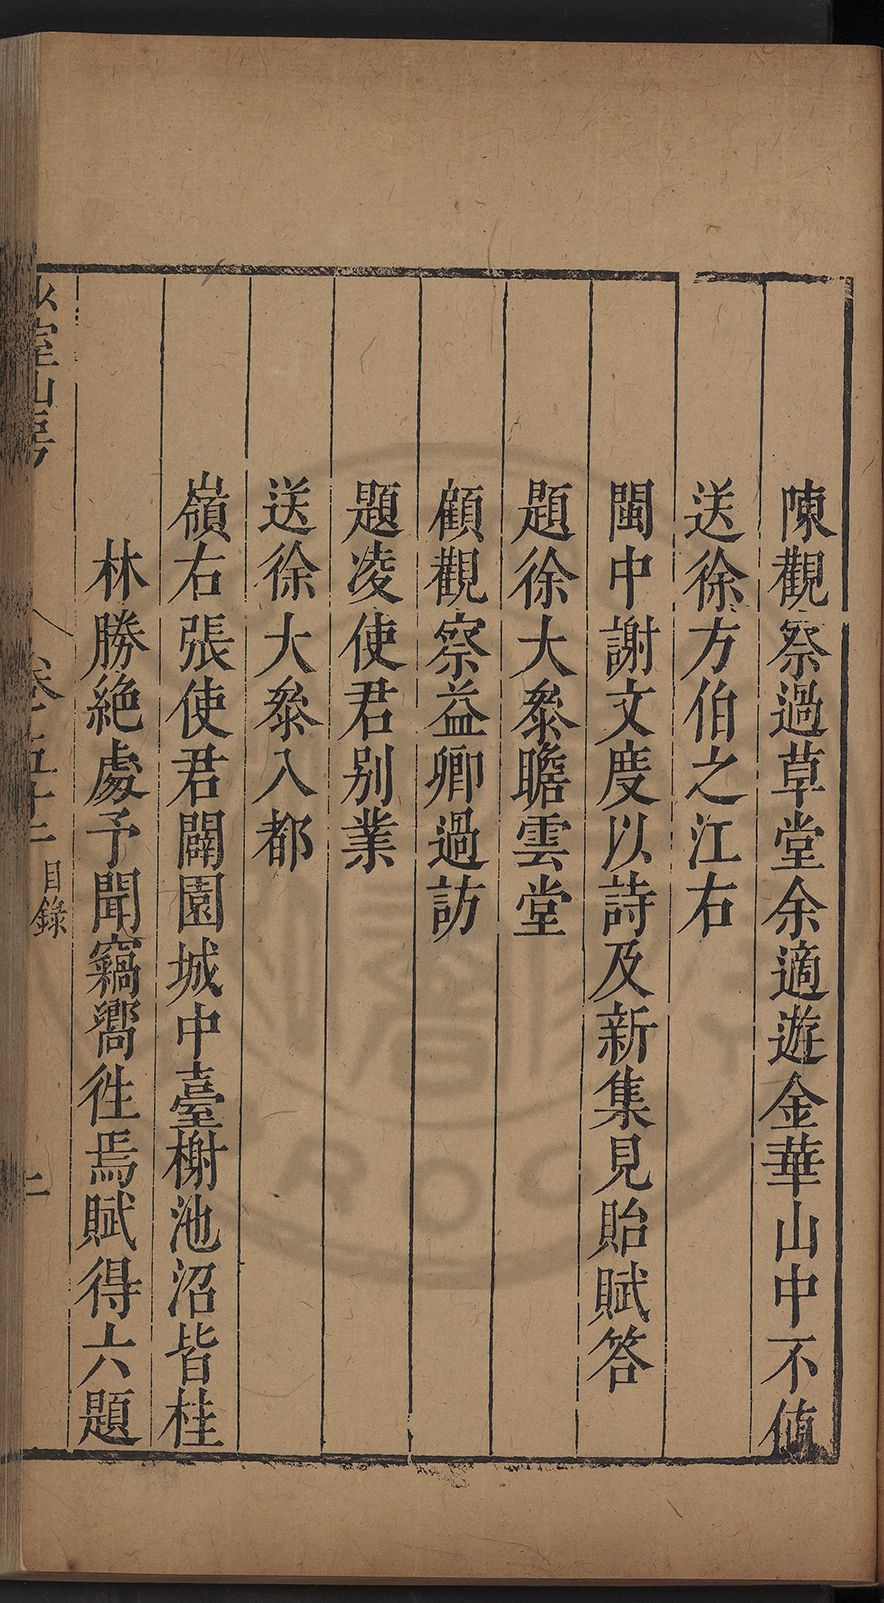 陳觀察過草堂余適遊金華山中不值
送徐方伯之江右
閩中謝文度以詩及新集見貽賦答
題徐大叅瞻雲堂
顧觀察益卿過訪
題凌使君别業
送徐大叅入都
嶺右張使君闢園城中臺榭池沼皆桂
林勝絶處予聞竊嚮徃焉賦得六題
少室山房
卷五十二 目錄 二